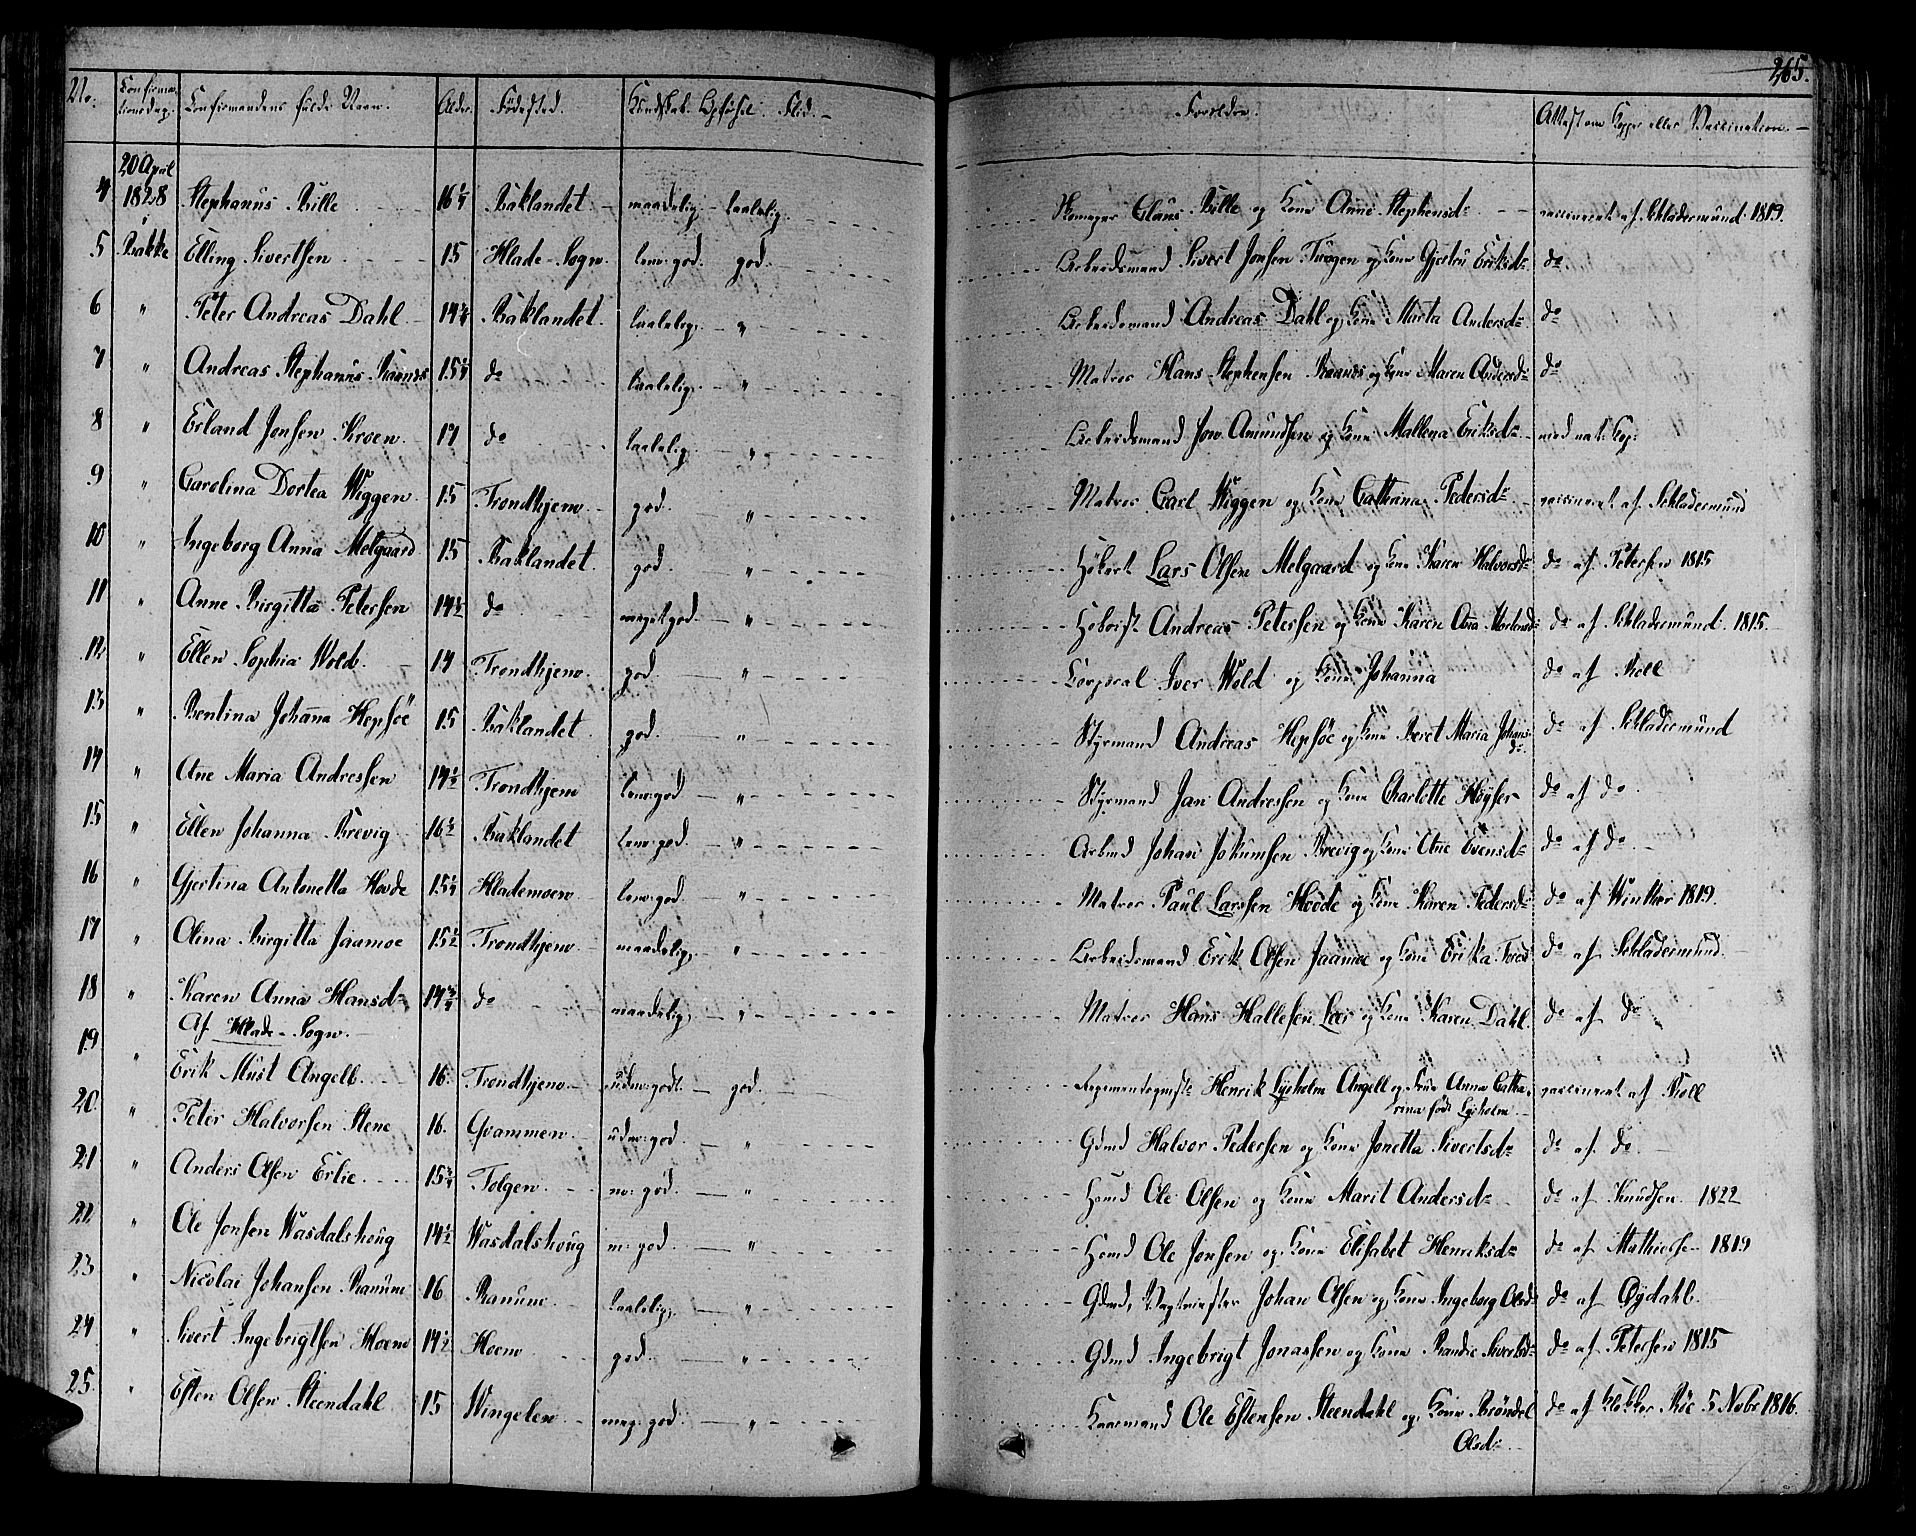 265.
No. Confirmationsdag. Confirmandens fulde Navn. Alder. Fødested. Kundskab. Opførsel. Flid. Forældre. Attest om Kopper eller Vaccination.
20 April
4 1828 Stephanus Bille 16 1/4 Baklandet maadelig taalelig Claus Bille og Kone Anne Stephensd: vaccineret af Schladermund 1819.
i
5 Bakke Elling Sivertsen 15 Hlade-Sogn temr god. god. Arbeidsmand Sivert Jonsen og Kone Gjertru Eriksd: do
6 " Peter Andreas Dahl 14 3/4 Baklandet. taalelig. " Arbeidsmand Andreas Dahl og Kone Marta Andersd: do
7 " Andreas Stephanus Raanes 15 1/4 do taalelig. " Matros Hans Stephensen Raanes og Kone Maren Andersd: do
8 " Erland Jonsen Kroen 17 do taalelig. " Arbeidsmand Jon Amundsen og Kone Mallena Eriksd: med nat: Kop:
9 " Carolina Dortea Wiggen 15 Trondhjem god. " Matros Carl Wiggen og Kone Cathrina Pedersd: vaccineret af Schladermund
10 " Ingeborg Anna Melgaard 15 Baklandet. god. " Høker Lars Olsen Melgaard og Kone Karen Halvorsd: do af Petersen 1815
11 " Anne Birgitta Petersen 14 1/2 do meget god. " Andreas Petersen og Kone Karen Ana Mortensd: do af Schladermund. 1815.
12 " Ellen Sophia Wold. 14 Trondhjem. god. " Corporal Iver Wold og Kone Johanna do af Moll
13 " Bentina Johana Hepsöe 15 Baklandet. god. " Styrmand Andreas Hepsöe og Kone Beret Maria Johansd: do af Schladermund
14 " Ane Maria Andressen 14 1/2 Trondhjem temr god " Styrmand Jan Andressen og Kone Charlotte Höyser do af do
15 " Ellen Johanna Brevig 16 1/2 Baklandet temr god. " Arbmd Johan Jokumsen Brevig og Kone Ane Evensd: do af do
16 " Gjertina Antonetta Hovde 15 1/4 Hlademoen temr god. " Matros Paul Larssen Hovde og Kone Karen Pedersd: do af Winther 1819.
17 " Olina Birgitta Jaamoe 15 1/2 Trondhjem maadelig, " Arbeidsmand Erik Olsen Jaamoe og Kone Erika Toresd: do af Schladermund.
18 " Karen Anna Hansd: 14 3/4 do maadelig, " Matros Hans Hallesen Leer og Kone Karen Dahl. do af do
Af Hlade-Sogn.
19 " Erik Must Angell 16. Trondhjem udm: godt. god. Henrik Lysholm Angell og Frue Anna Cathrina født Lysholm vaccineret af Moll
20. " Peter Halvorsen Stene 16. Qvammen udm: god. " Gdmd Halvor Pedersen og Kone Jonetta Sivertsd: do af. do
21 " Anders Olsen Erlie 15 3/4 Tolgen. m: god. " Hmd Ole Olsen og Kone Marit Andersd: do af Knudsen 1822
22 " Ole Jonsen Wasdalshoug 14 1/2 Wasdalshoug m: god. " Hmd Ole Jonsen og Kone Elisabet Henriksd: do af Mathiesen 1819
23 " Nicolai Johansen Ranum 16 Ranum taalelig. " Gdmd, Johan Olsen og Kone Ingeborg Olsd: do af Öydahl.
24 " Sivert Ingebrigtsen Hoem 14 1/2 Hoem god. " Gdmd Ingebrigt Jonassen og Kone Randie Sivertsd: do af Petersen 1815
25. " Esten Olsen Steendahl 15 Wingelen meg: god: " Ole Estensen Steendahl og Kone Bröndel Olsd: do af Klokker Röe 5 Nobr 1816.